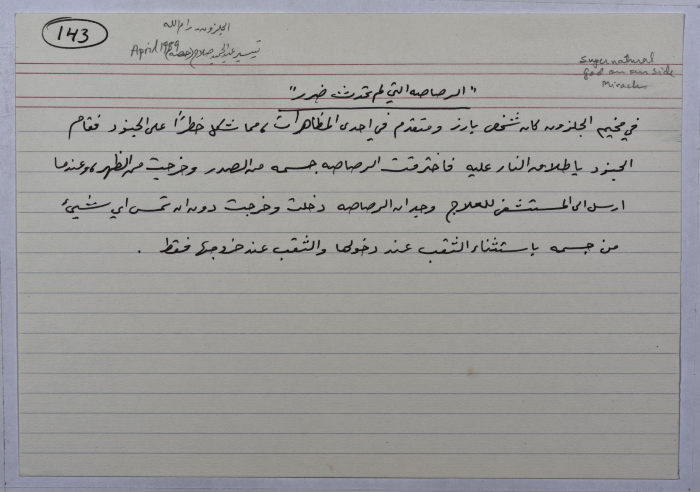 143
الجلزون - رام الله
April 1989
تيسير عبد
Supernatural
God on our side
Miracles
"الرصاصه التي لم تحدث ضرر"
في مخيم الجلزون كان شخص بارز ومتقدم في احدى المظاهرات، مما شكل خطراً على الجنود فقام
الجنود باطلاق النار عليه فاخترقت الرصاصه جسمه من الصدر وخرجت من الظهر، وعندما
ارسل الى المستشفى للعلاج وجد ان الرصاصه دخلت وخرجت دون ان تمس اي شيئ
من جسمه باستثناء الثقب عند دخولها والثقب عند خروجها فقط .